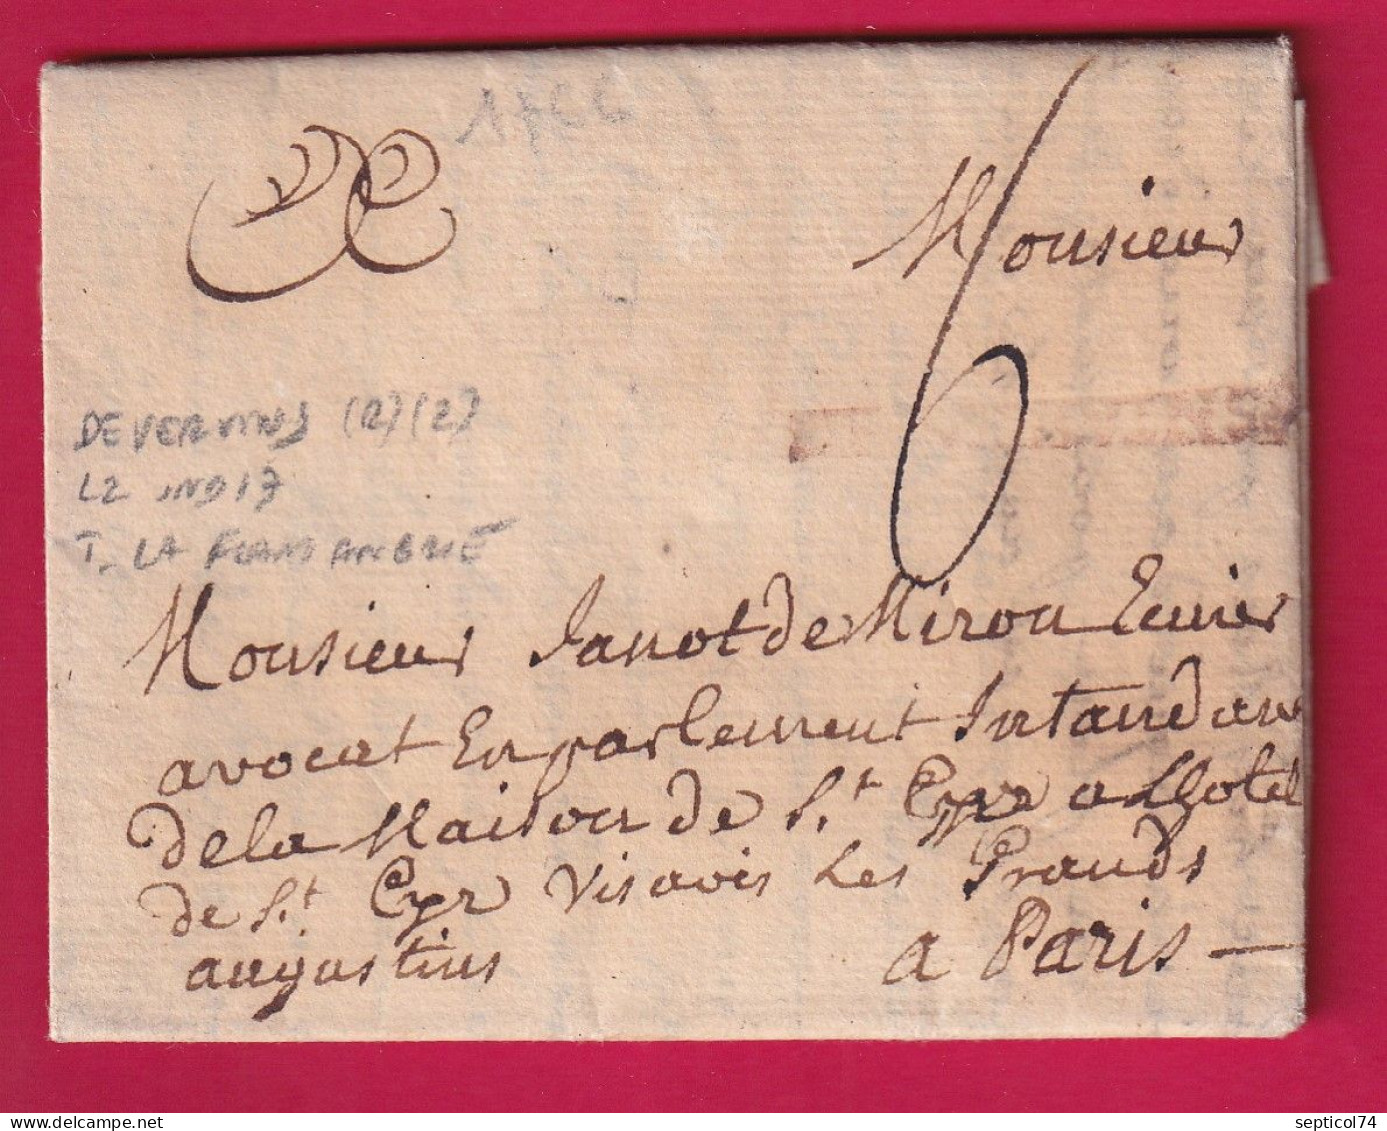 1766
Monsieur
6
DEVERVINS (R)(2)
L2 IND 17
T. LA FLAMANGRIE
Monsieur Janot de Miron Ecuier
avocat En parlement Intandant
de la Maison de St. Cyr a Lhotel
de St. Cyr Visavis Les Grands
augustins a Paris
septicol74